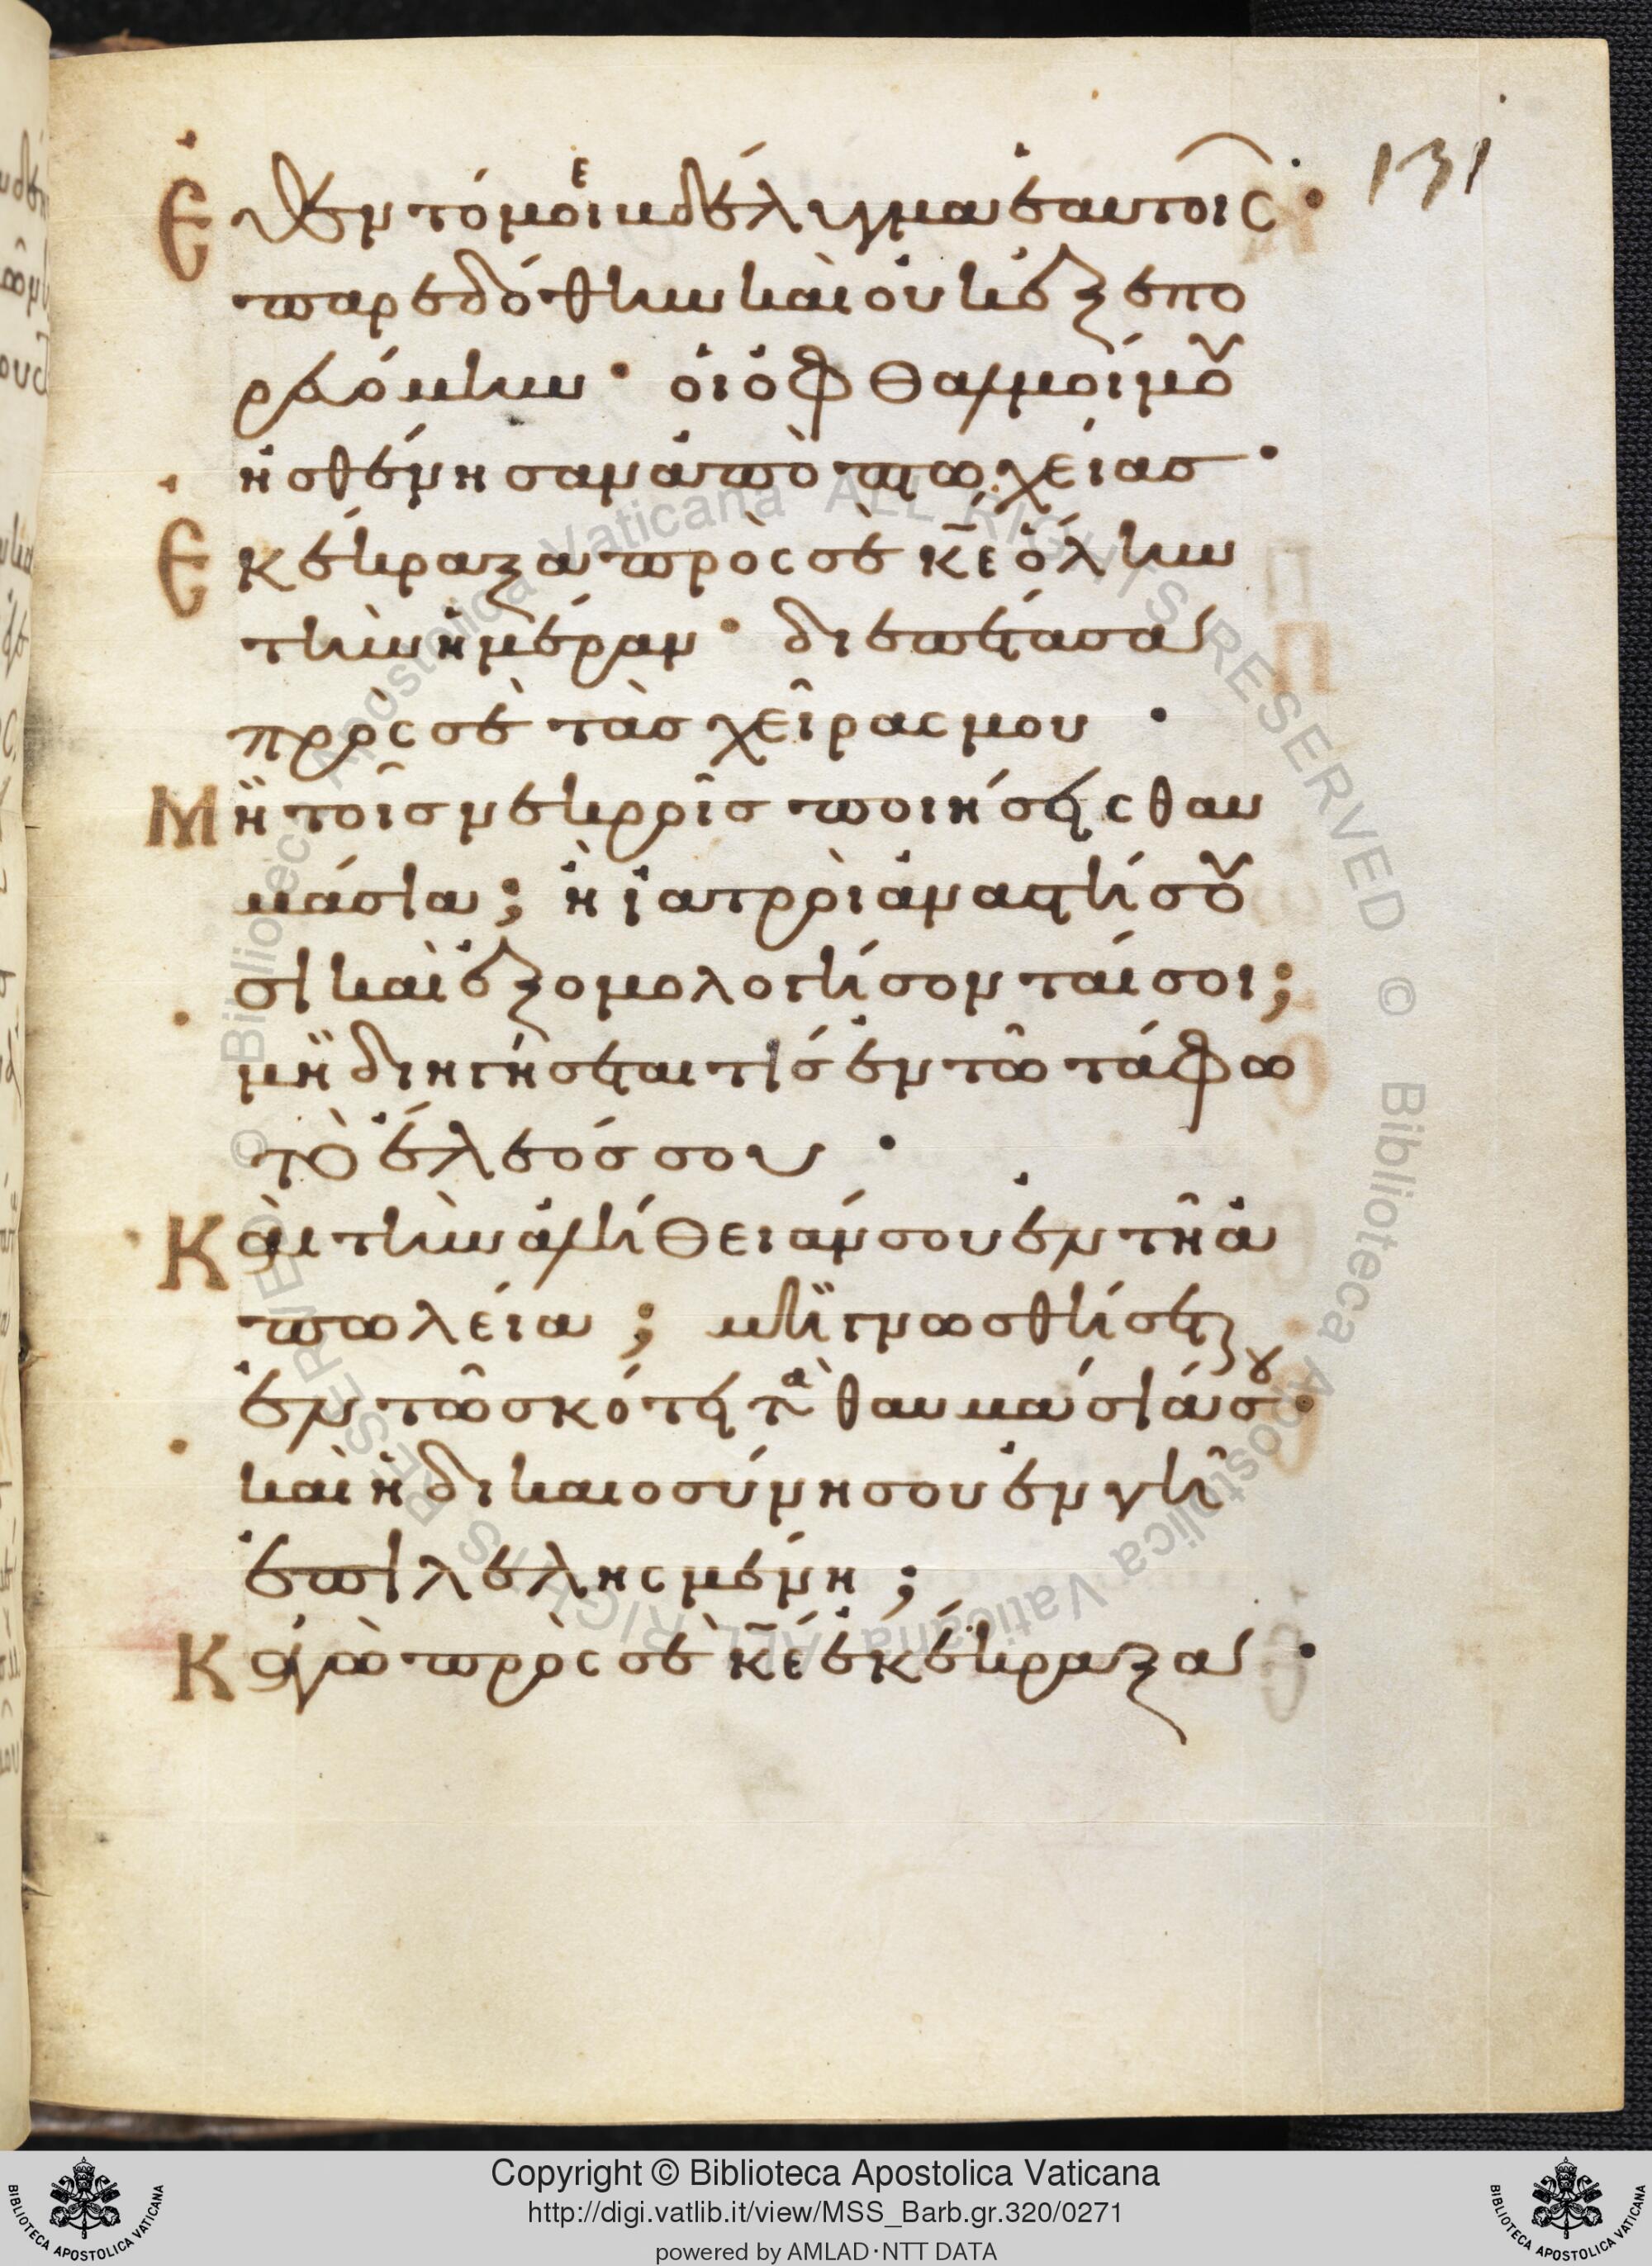 131
Ἔθεντό με βδέλυγμα ἑαυτοῖς·
παρεδόθην καὶ οὐκ ἐξεπο
ρευόμην· οἱ ὀφθαλμοί μου
ἠσθένησαν ἀπὸ πτωχείας·
Ἐκέκραξα πρὸς σὲ κ̅ε̅ ὅλην
τὴν ἡμέραν· διεπέτασα
πρὸς σὲ τὰς χεῖρας μου·
Μὴ τοῖς νεκροῖς ποιήσεις θαυ
μάσια; ἢ ἰατροὶ ἀναστήσου
σι καὶ ἐξομολογήσονταί σοι;
μὴ διηγήσεταί τις ἐν τῶ τάφω
τὸ ἔλεός σου·
Καὶ τὴν ἀλήθειάν σου ἐν τῆ ἀ
πωλεία; μὴ γνωσθήσεται
ἐν τῶ σκότει τὰ θαυμάσιά σου·
καὶ ἡ δικαιοσύνη σου ἐν γῆ
ἐπιλελησμένη;
Κἀγὼ πρὸς σὲ κ̅ε̅ ἐκέκραξα·
© Biblioteca Apostolica Vaticana ALL RIGHTS RESERVED © Biblioteca Apostolica Vaticana ALL RIGHTS RESERVED
Copyright © Biblioteca Apostolica Vaticana
http://digi.vatlib.it/view/MSS_Barb.gr.320/0271
powered by AMLAD·NTT DATA
BIBLIOTECA APOSTOLICA VATICANA
BIBLIOTECA APOSTOLICA VATICANA